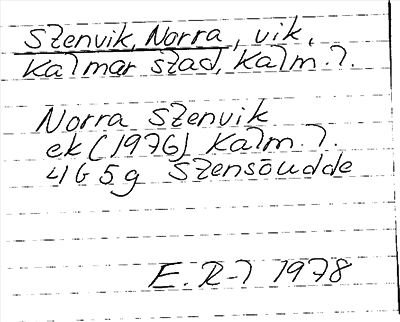 Stenvik, Norra, vik,
Kalmar stad, Kalm. l.
Norra Stenvik
ek (1976) Kalm. l.
4G5g Stensöudde
E. R-l 1978